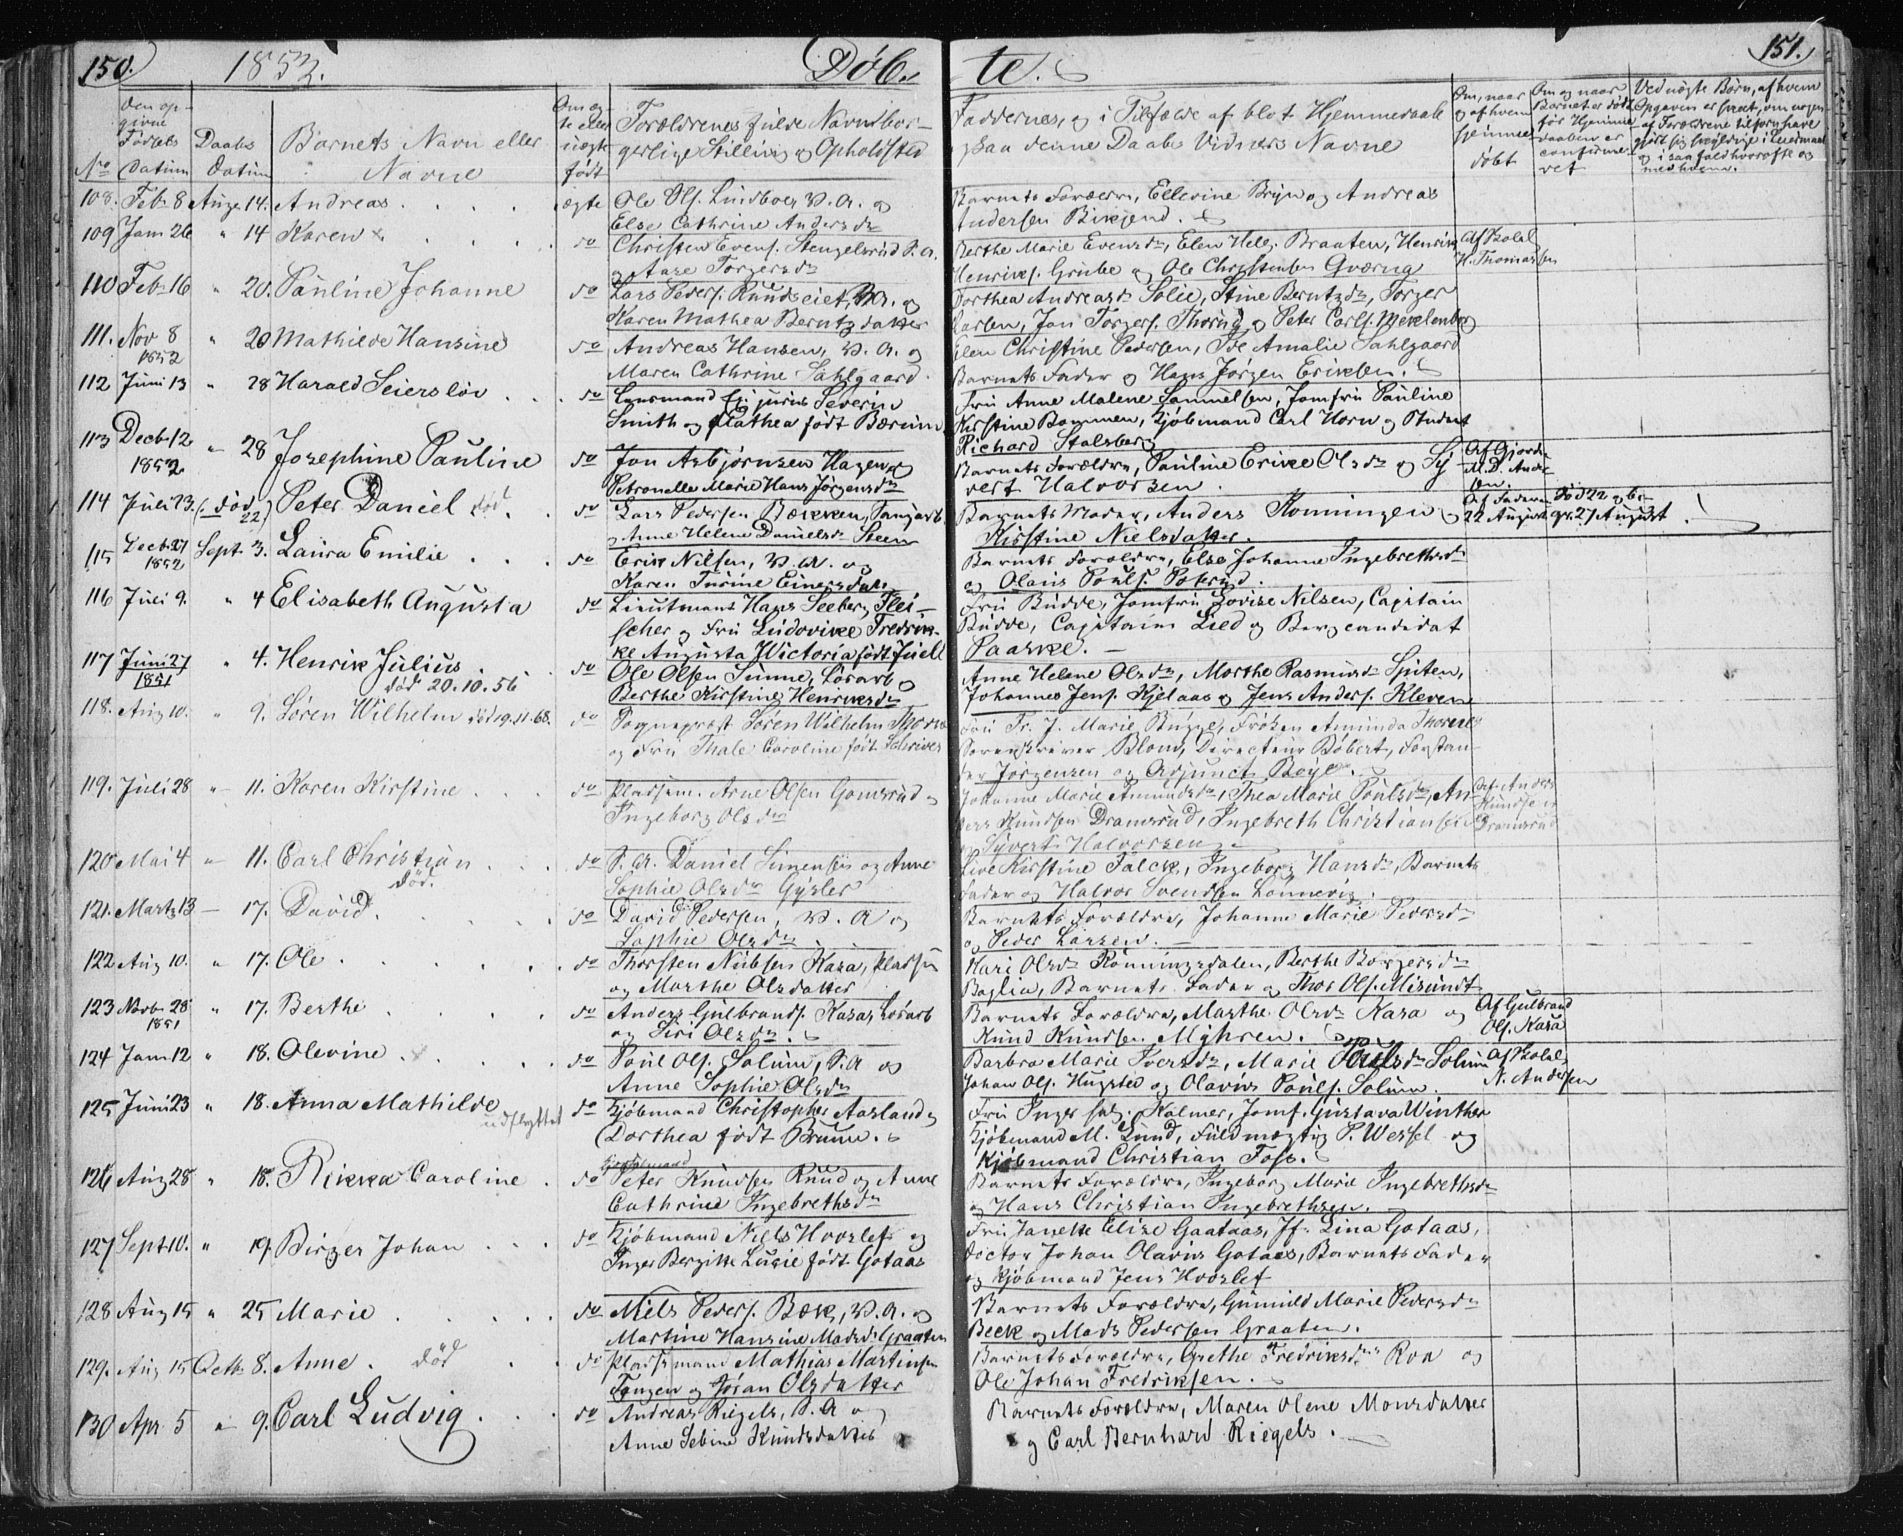 150. 1853. Døb-
te. 151.
No
Den opgivne Fødsels Datum
Daabs Datum
Barnets Navn eller Navne
Om ægte eller uægte født
Forældrenes fulde Navn, borgerlige Stilling og Opholdsted
Faddernes, og i Tilfælde af blot Hjemmedaab
paa denne Daabs Vidners Navne
Om, naar og af hvem hjemmedøbt
Om og naar Barnet er død før Hjemmedaaben er confirmeret
108. Feb. 8 Aug. 14. Andreas ægte Ole Ols. Lindboe, V. A. og
Else Cathrine Andersdr
Barnets Forældre, Ellevine Bryn og Andreas
Andersen
109 Jan 26 " 14 Karen do Christen Evens. Stengelsrud P. A.
og Aase Torgersdr
Berthe Marie Evensdr, Elen Hels. Braaten, Henrik
Henriks. Grube og Ole Christensen Gværna
Af Skolel. H. Thomassen
110 Feb 16 " 20. Pauline Johanne do Lars Peders. Ruudseiet, V. A. og
Karen Mathea Berntzdatter
Dorthea Andreasdr Solie, Stine Berntzdr, Torger
Larsen, Jon Torgers. Thorud og Peter Carls. Meklenborg
111. Nov 8 1852 " 20 Mathilde Hansine do Andreas Hansen, V. A. og
Maren Cathrine Sahlgaard
Elen Christine Pedersen, Ide Amalie Sahlgaard
Barnets Fader og Hans Jørgen Eriksen.
112 Juni 13 " 28 Harald Seiersløv do Lensmand Ex. juris Severin
Smith og Mathea født Bærum
Fru Anne Malene Samuelsen, Jomfru Pauline
Kirstine Bommen, Kjøbmand Carl Horn og Student
Richard Stalsberg
113 Decb. 12 1852 " 28 Josephine Pauline do Jon Asbjørnsen Hagen og
Petronelle Marie Hans Jørgensdr
Barnets Forældre, Pauline Erike Olsdr og Sy-
vert Halvorsen
Af Gjordm. M. D. Andersen.
114 Juli 23. (: død 22) Peter Daniel død. do Lars Pedersen Bækken,
og Anne Helene Danielsdr Steen
Barnets Moder, Anders Ronningen og
Kirstine Nielsdatter.
Af Faderen 22 August
død 22 og be-
gr. 27 August.
115 Decb. 27 1852 Sept. 3. Laura Emilie do Erik Nilsen, V. A. og
Karen Turine Einersdatter
Barnets Forældre, Else Johanne Ingebrethsdr
og Olaus Pouls.
116 Juli 9. " 4 Elisabeth Augusta do Lieutenant Hans Seeberg Flei-
scher og Fru Ludovike Fredrik-
ke Augusta Wictoria født Juell
Fru Budde, Jomfru Lovise Nilsen, Capitain
Budde, Capitain Lied og Bergcandidat
Paaske.
117 Juni 27 1851 " 4. Henrik Julius do Ole Olsen Tunne, Løsarb og
død 20.10.56
Berthe Kirstine Henriksdr
Anne Helene Olsdr, Marthe Rasmusdr Sputen,
Johannes Jens. Kjelaas og Jens Anders. Kleven
118. Aug 10. " 9. Søren Wilhelm død 19.11.68. do Sognepræst Søren Wilhelm Thorne
og Fru Thale Caroline født Schriver
Fru Fr. J. Marie Bugge, Frøken Amunda Thorne
Sorenskriver Blom, Directeur Bøbert, Forstan-
der Jørgensen og Adjunct Boye.
119. Juli 28 " 11. Karen Kirstine do Pladsem. Arne Olsen Gamsrud og
Ingeborg Olsdr
Johanne Marie Amundsdr, Thea Marie Poulsdr, An-
ders Knudsen Dramsrud, Ingebreth Christiansen og
Syvert Halvorsen
Af Anders Knudsen Dramsrud
120 Mai 4 " 11. Carl Christian do P. A. Daniel Simensen og Anne
død.
Sophie Olsdr Gysler
Live Kirstine Falck, Ingeborg Hansdr, Barnets
Fader og Halvor Svendsen Lonnevig.
121. Marts 13 — 17. David. do David Pedersen, V. A. og
Sophie Olsdr
Barnets Forældre, Johanne Marie Pedersdr
og Peder Larsen.
122 Aug 10. " 17. Ole do Thorsten Nubsen Kasa, Pladsm
og Marthe Olsdatter
Kari Olsdr Rønningsdalen, Berthe Borgersdr
Baglien, Barnets Fader og Thor Ols. Misundt
123 Novb 28 1851 " 17. Berthe do Anders Gulbrands. Kasa, Løsarb
og Siri Olsdr.
Barnets Forældre, Marthe Olsdr Kasa og
Knud Knudsen Myhren.
Af Gulbrand Ols. Kasa
124 Jan. 12 " 18. Olevine do Poul Ols. Solum, P. A. og
Anne Sophie Olsdr
Barbra Marie Iversdr, Marie Poulsdr Solum
Johan Ols. Hugsted og Olavus Pouls. Solum
Af Skolel. N. Andersen
125 Juni 23 " 18. Anna Mathilde udflyttet do Kjøbmand Christopher Aasland og
Dorthea født Bruun.
Fru Inger sal. Kalmer, Jomf. Gustava Winther
Kjøbmand M. Lund, Fuldmægtig P. Wessel og
Kjøbmand Christian Foss.
126 Aug 28 " 18. Rikka Caroline do Peter Knudsen Ruud og Anne
Cathrine Ingebrethsdr
Barnets Forældre, Ingeborg Marie Ingebrethsdr
og Hans Christian Ingebrethsen.
127 Sept 10. " 19. Birger Johan do Kjøbmand Niels Hvoslef og
Inger Bergitte Lucie født Gotaas
Fru Janette Elise Gaataas, Jf. Lina Gotaas,
Doctor Johan Olavus Gotaas, Barnets Fader
og Kjøbmand Jens Hvoslef
128 Aug 15 " 25 Marie do Niels Peders. Bæk, V. A. og
Martine Hansine Madsdr Graaten
Barnets Forældre, Gunnild Marie Pedersdr
Beck og Mads Pedersen Graaten.
129. Aug 15 Octb. 8. Anne. død do Pladsemand Mathias Martinsen
Tangen og Jøran Olsdatter
Barnets Forældre, Grethe Fredriksdr Roa og
Ole Johan Fredriksen.
130 Apr. 5 " 9. Carl Ludvig do Andreas Riegels, P. A. og
Anne Sebine Knudsdatter
Barnets Forældre, Maren Olene Monsdatter
og Carl Bernhard Riegels.